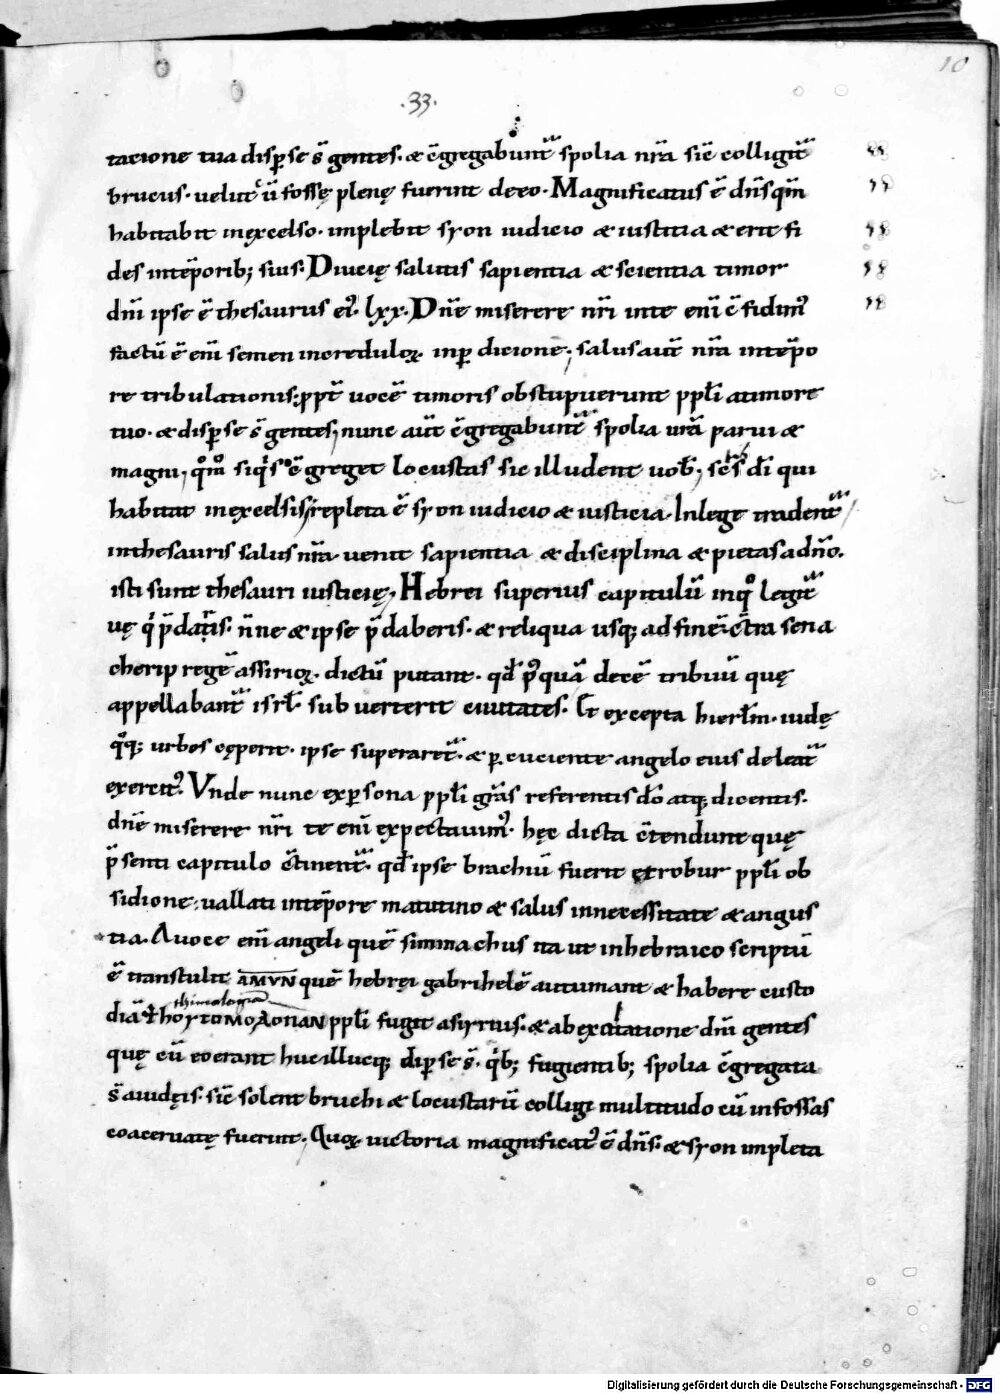 10
.33.
tacione tua disp̱se s̄ gentes. & c̄gregabunt᷑ spolia nr̄a sic̄ colligit᷑
brucus. velut cū fossę plenę fuerint de eo. Magnificatus ē dn̄s qm̄
habitabit in excelso. implebit syon iudicio & iustitia & erit fi
des in tēporib; suis. Diuicię salutis sapientia & scientia timor
dn̄i ipse ē thesaurus ei'. lxx. Dn̄e miserere nr̄i in te eni̅ c̄fidim'
factū ē eni̅ semen increduloꝝ in ꝑdicione. salus aut̄ nr̄a in tēpo
re tribulationis. ꝓpt̄ uocē timoris obstupuerunt ppl̄i a timore
tuo. & disp̱se s̄ gentes, nunc aut̄ c̄gregabunt᷑ spolia ur̄a parui &
magni, qͦmͦ siqͥs c̄greget locustas sic illudent uob̄, sc̄s d̄s qui
habitat in excelsis, repleta ē syon iudicio & iusticia. In lege tradent᷑
in thesauris salus nr̄a. uenit sapientia & disciplina & pietas ad dn̄o.
isti sunt thesauri iusticię, Hebrei superius capitulū in qͦ legit᷑
uę qͥ p̄daris. nōne & ipse p̄daberis. & reliqua usq; ad finē. c̄tra senna
cherip regē assirioꝝ. dictū putant. qd̄ p'quā decē tribuū quę
appellabant᷑ isrl̄. subuerterit ciuitates. Et excepta hierl̄m. iudę
qͦq; urbes cęperit. ipse superaret᷑. & ꝑcuciente angelo eius deleat᷑
exercit'. Vnde nunc ex ꝑsona ppl̄i grās referentis d̄o atq; dicentis.
dn̄e miserere nr̄i te eni̅ expectauim'. hęc dicta c̄tendunt quę
p̄senti capitulo c̄tinent᷑. qd̄ ipse brachiū fuerit et robur ppl̄i ob
sidione uallati in tēpore matutino & salus in necessitate & angus
tia. A uoce eni̅ angeli quē simmachus ita ut in hebraico scriptū
ē transtulit AMVN quē hebręi gabrihelē autumant & habere custo
ppl̄i fugit asyrius. & ab exaltatione dn̄i gentes
quę cū eo erant huc illucq; disp̱se s̄. qͥb; fugientib; spolia c̄gregata
s̄ a iudęis. sic̄ solent bruchi & locustarū colligi multitudo cū in fossas
coaceruatę fuerint. Quoꝝ uictoria magnificat' ē dn̄s. & syon impleta
Digitalisierung gefördert durch die Deutsche Forschungsgemeinschaft - DFG